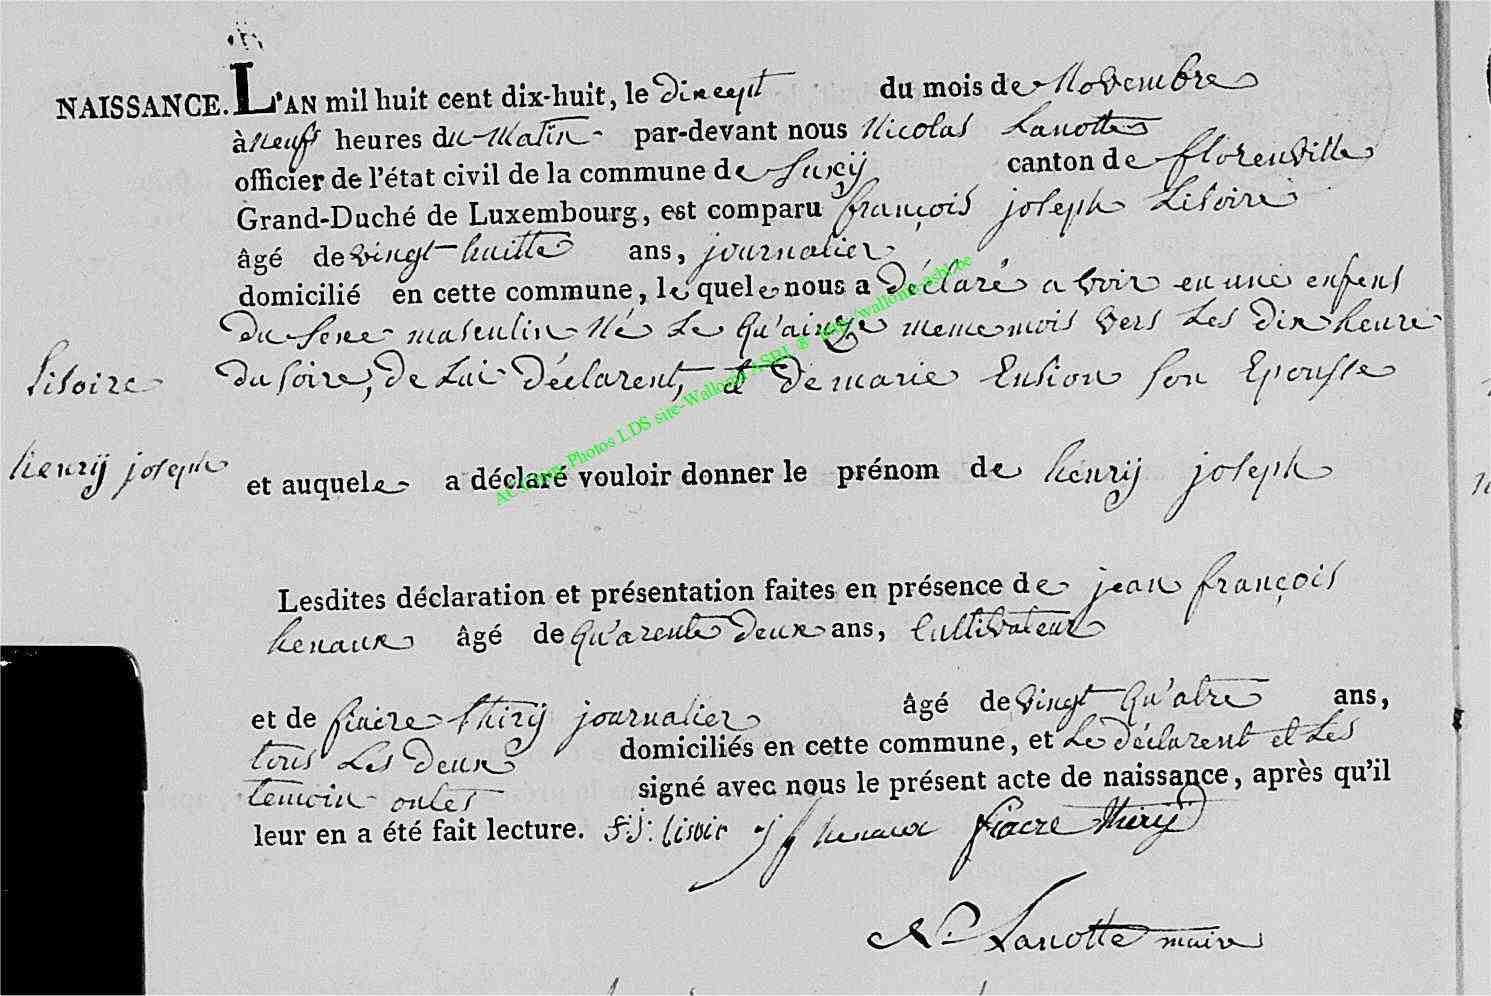 NAISSANCE. L'AN mil huit cent dix-huit, le dixcept du mois de Novembre
à neuf heures du Matin par-devant nous Nicolas Lanotte
officier de l'état civil de la commune de Suxÿ canton de florenville
Grand-Duché de Luxembourg, est comparu françois joseph Lisoire
âgé de vingt-huitte ans, journalier
domicilié en cette commune, lequele nous a déclaré avoir eu une enfens
du sexe masculin Né Le Qu'ainze meme mois vers Les dix heure
Lisoire du Soire, de Lui déclarent, et de marie Ension Son Epousse
henrÿ joseph et auquele a déclaré vouloir donner le prénom de henrÿ joseph
Lesdites déclaration et présentation faites en présence de jean françois
henaux âgé de Qu'arente deux ans, Cultivateur
et de fiacre thirÿ journalier âgé de vingt Qu'atre ans,
tous Les deux domiciliés en cette commune, et Le déclarent et Les
temoin ontes signé avec nous le présent acte de naissance, après qu'il
leur en a été fait lecture. F:J: Lisoir jf henaux fiacre thirÿ
N. Lanotte maire
Photos LDS site-Wallonie ASBL ® http://wallonie-asbl.be